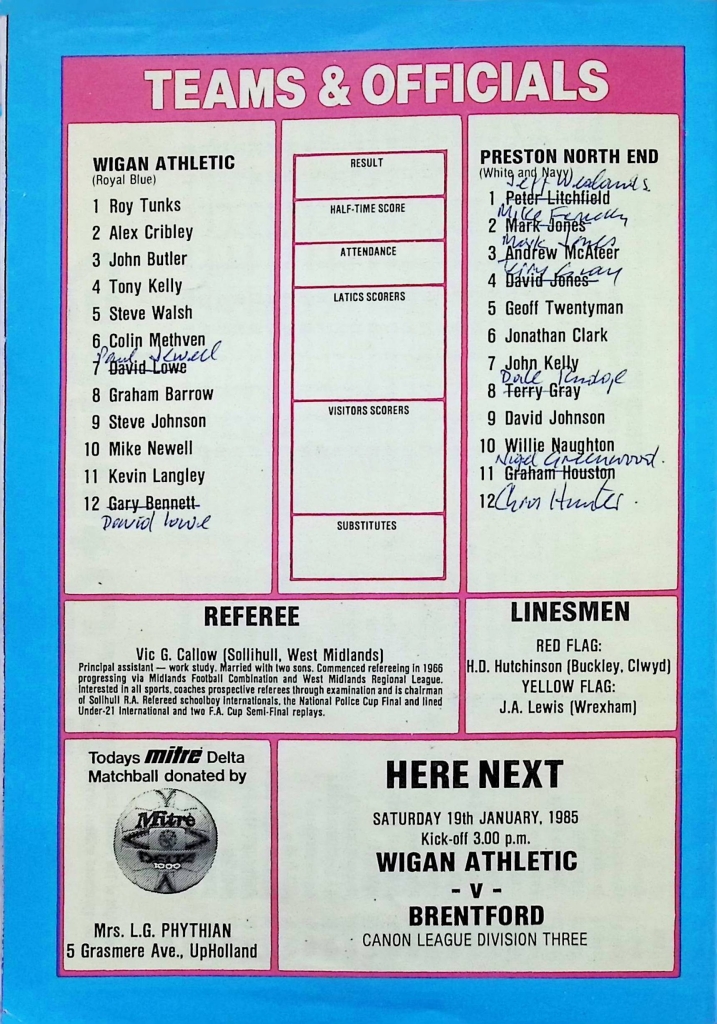 TEAMS & OFFICIALS
WIGAN ATHLETIC
(Royal Blue)
1 Roy Tunks
2 Alex Cribley
3 John Butler
4 Tony Kelly
5 Steve Walsh
6 Colin Methven
Paul Jewell
7 David Lowe
8 Graham Barrow
9 Steve Johnson
10 Mike Newell
11 Kevin Langley
12 Gary Bennett
David Lowe
RESULT
HALF-TIME SCORE
ATTENDANCE
LATICS SCORERS
VISITORS SCORERS
SUBSTITUTES
PRESTON NORTH END
(White and Navy)
Jeff Wealands
1 Peter Litchfield
Mike
2 Mark Jones
Mark Jones
3 Andrew McAteer
Terry Gray
4 David Jones
5 Geoff Twentyman
6 Jonathan Clark
7 John Kelly
Dale Rudge
8 Terry Gray
9 David Johnson
10 Willie Naughton
Nigel Greenwood.
11 Graham Houston
12 Chris Hunter.
REFEREE
Vic G. Callow (Sollihull, West Midlands)
Principal assistant — work study. Married with two sons. Commenced refereeing in 1966
progressing via Midlands Football Combination and West Midlands Regional League.
Interested in all sports, coaches prospective referees through examination and is chairman
of Solihull R.A. Refereed schoolboy internationals, the National Police Cup Final and lined
Under-21 International and two F.A. Cup Semi-Final replays.
LINESMEN
RED FLAG:
H.D. Hutchinson (Buckley, Clwyd)
YELLOW FLAG:
J.A. Lewis (Wrexham)
Todays mitre Delta
Matchball donated by
Mitre
DELTA
1000
Mrs. L.G. PHYTHIAN
5 Grasmere Ave., UpHolland
HERE NEXT
SATURDAY 19th JANUARY, 1985
Kick-off 3.00 p.m.
WIGAN ATHLETIC
- V -
BRENTFORD
CANON LEAGUE DIVISION THREE